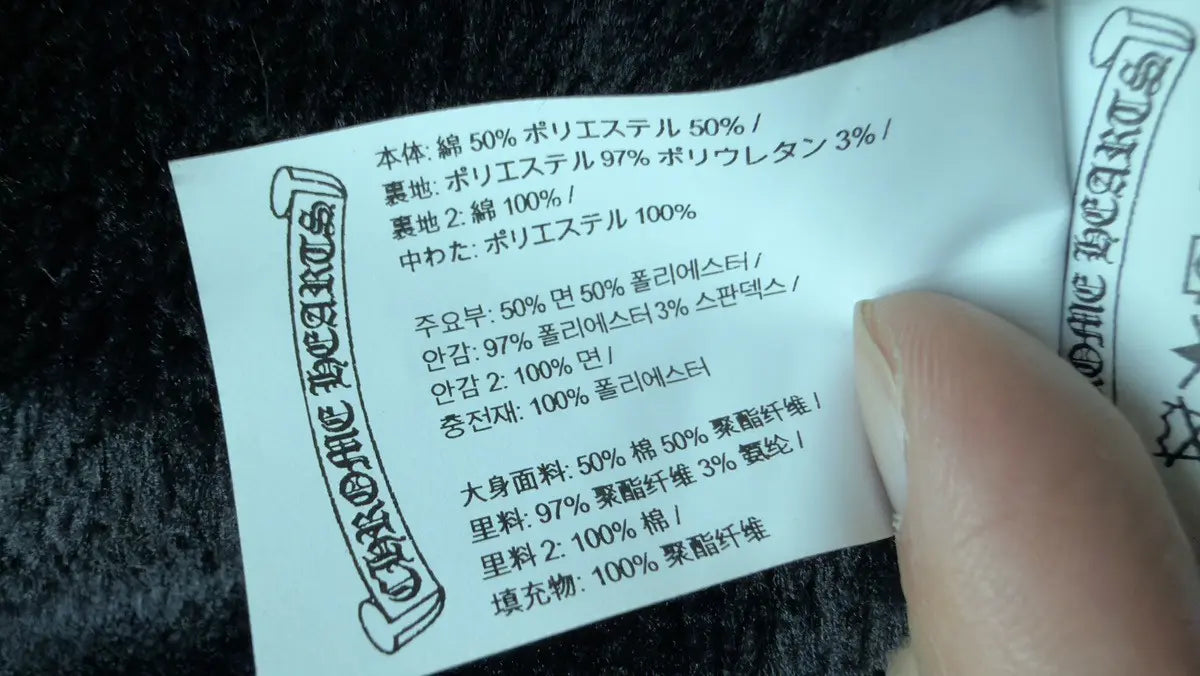 CHROME HEARTS
本体: 綿 50% ポリエステル 50% /
裏地: ポリエステル 97% ポリウレタン 3% /
裏地 2: 綿 100% /
中わた: ポリエステル 100%
주요부: 50% 면 50% 폴리에스터 /
안감: 97% 폴리에스터 3% 스판덱스 /
안감 2: 100% 면 /
충전재: 100% 폴리에스터
大身面料: 50% 棉 50% 聚酯纤维 /
里料: 97% 聚酯纤维 3% 氨纶 /
里料 2: 100% 棉 /
填充物: 100% 聚酯纤维
ROME HEARTS